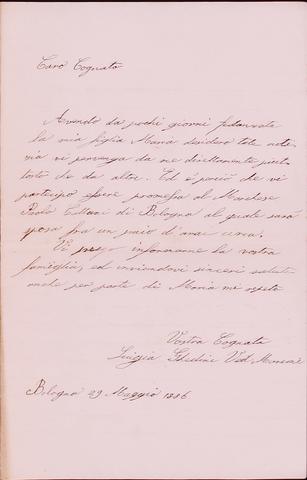 Caro Cognato
Avendo da pochi giorni fidanzata
la mia figlia Maria desidero tale noti-
zia vi pervenga da me direttamente piut
tosto che da altri. Ed è perciò che vi
partecipo essere promessa al Marchese
Paolo di Bologna al quale sarà
sposa fra un paio d'anni circa.
Vi prego informarne la vostra
famiglia, ed inviandovi sinceri saluti
anche per parte di Maria mi ripeto
Vostra Cognata
Luigia Ved.
Bologna 29 Maggio 1886